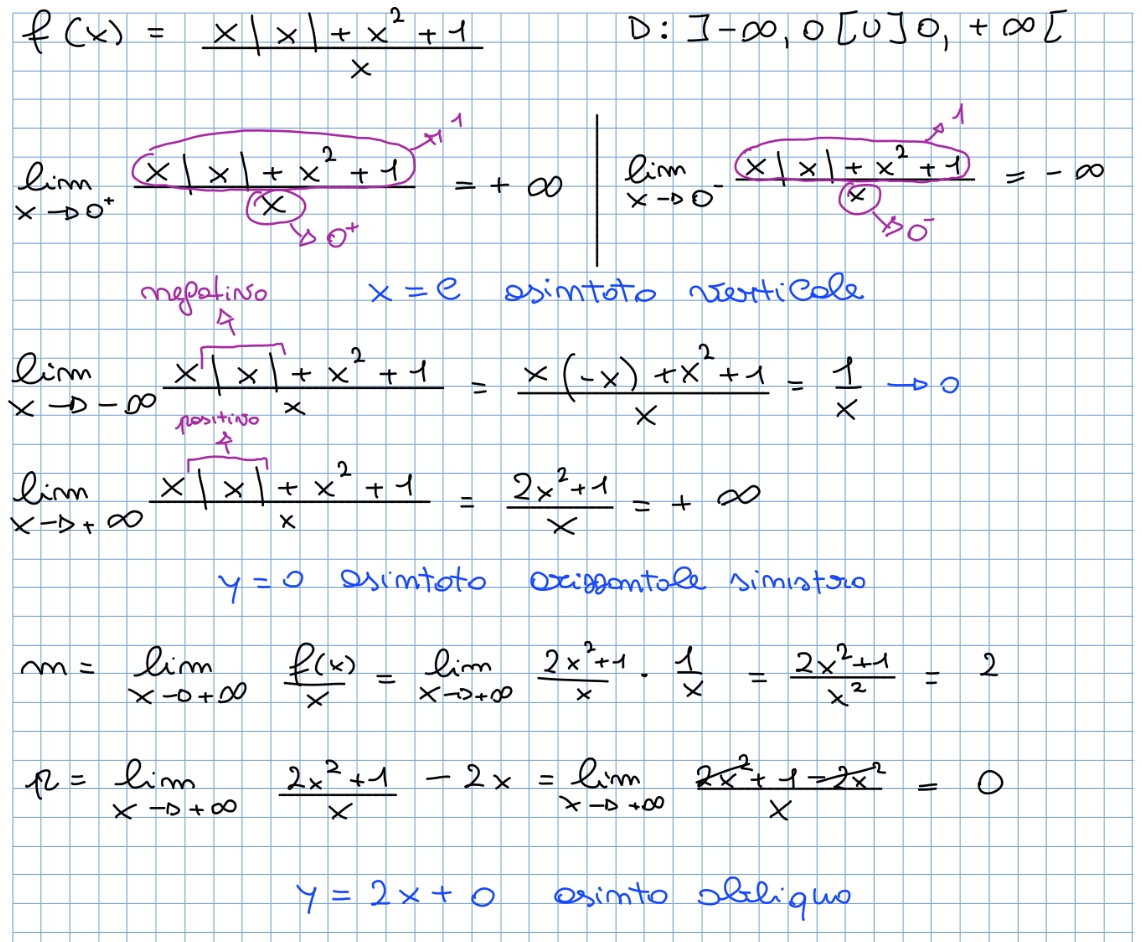 f(x) = (x|x| + x² + 1)/x D: ]-∞, 0[ U ]0, +∞[
lim x→0⁺ (x|x| + x² + 1)/x = +∞ →1 →0⁺ | lim x→0⁻ (x|x| + x² + 1)/x = -∞ →1 →0⁻
negativo x = e asintoto verticale
lim x→-∞ (x|x| + x² + 1)/x = (x(-x) + x² + 1)/x = 1/x → 0
positivo
lim x→+∞ (x|x| + x² + 1)/x = (2x²+1)/x = +∞
y = 0 asintoto orizzontale sinistro
m = lim x→+∞ f(x)/x = lim x→+∞ (2x²+1)/x · 1/x = (2x²+1)/x² = 2
q = lim x→+∞ (2x²+1)/x - 2x = lim x→+∞ (2x²+1-2x²)/x = 0
y = 2x + 0 asinto obliquo